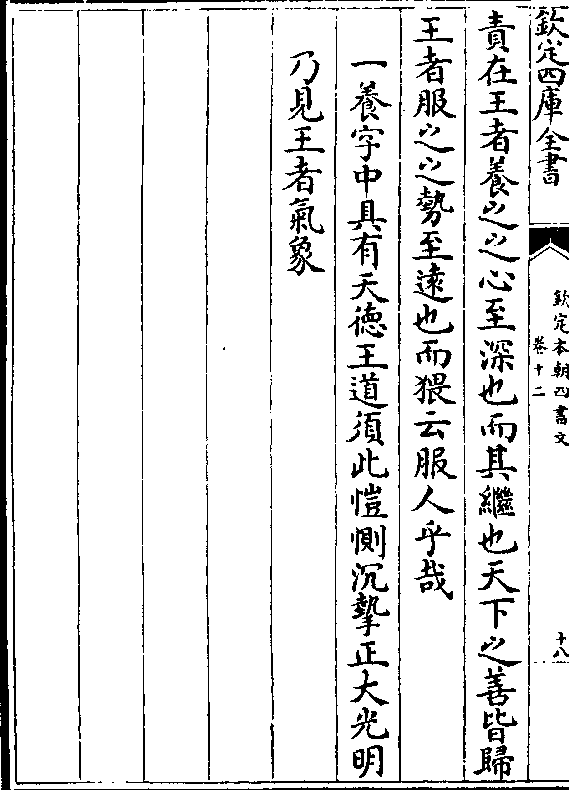 欽定四庫全書
欽定本朝四書文
卷十二
十八
責在王者養之之心至深也而其繼也天下之善皆歸
王者服之之勢至遠也而猥云服人乎哉
一養字中具有天德王道須此愷惻沉摯正大光明
乃見王者氣象